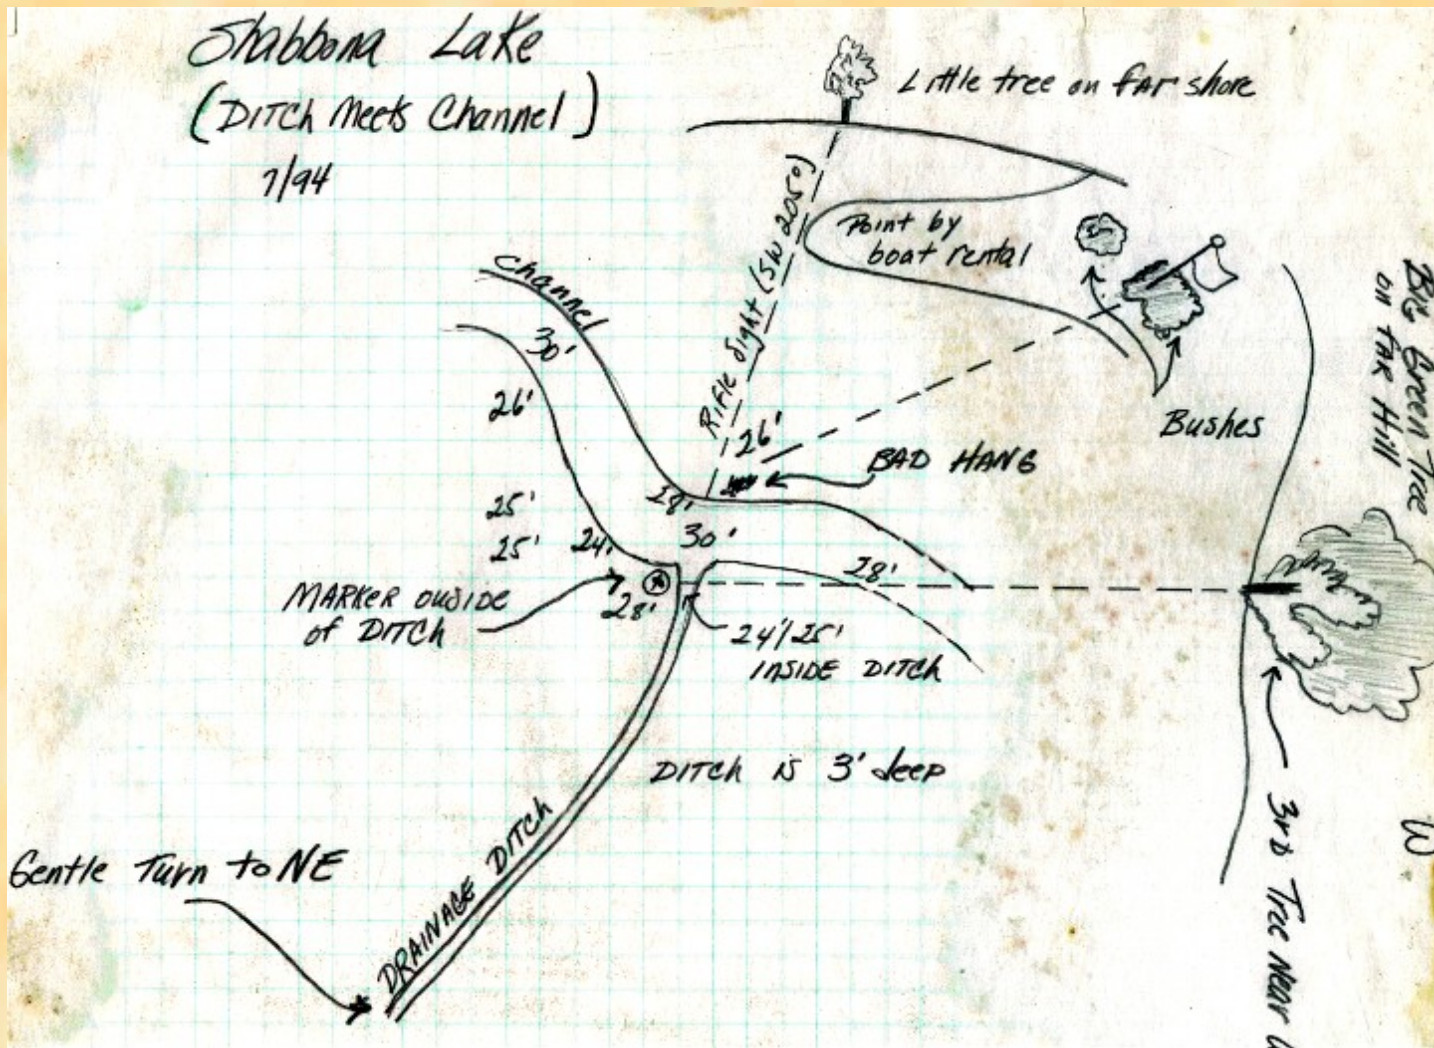 Shabbona Lake
(DITCH Meets Channel)
7/94
Little tree on far shore
Rifle Sight (SW 205°)
Point by
boat rental
Channel
30'
26'
26'
BAD HANG
Bushes
Big Green Tree
on FAR Hill
25'
28'
25'
24'
30'
28'
MARKER ouside
of DITCH
28'
24'/25'
INSIDE DITCH
DITCH is 3' deep
DRAINAGE DITCH
Gentle Turn to NE
3rd Tree Near
W